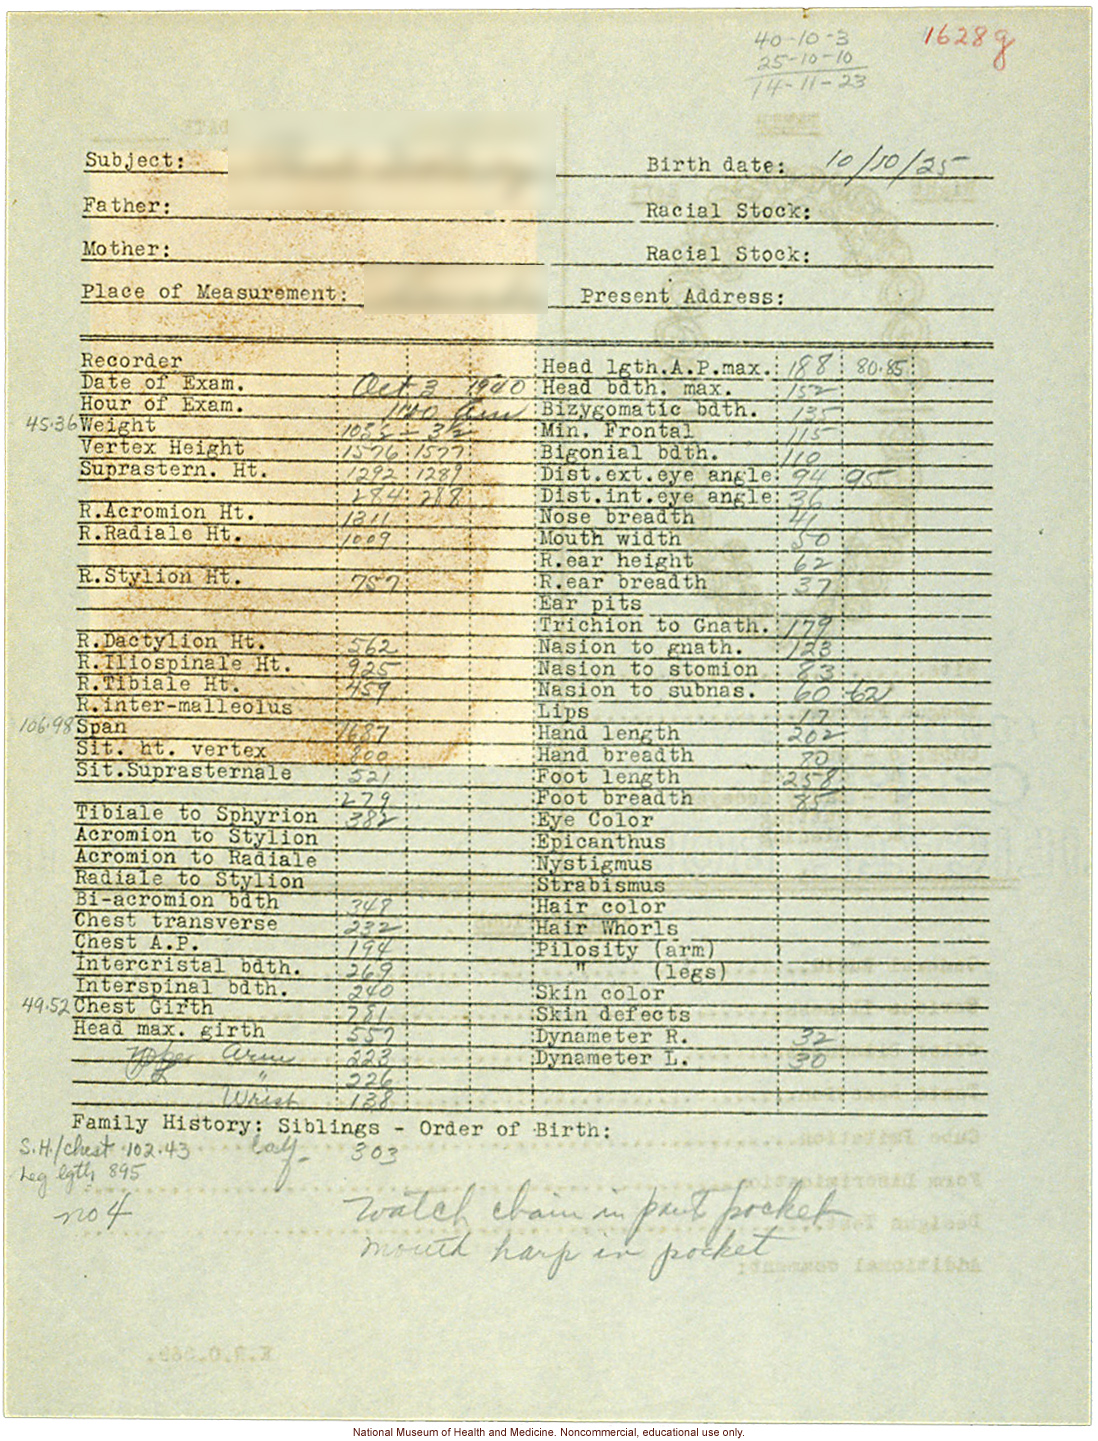 40-10-3
1628g
25-10-10
14-11-23
Subject: Birth date: 10/10/25
Father: Racial Stock:
Mother: Racial Stock:
Place of Measurement: Present Address:
Recorder Head lgth.A.P.max. 188 80.85
Date of Exam. Oct 3 1940 Head bdth. max. 152
Hour of Exam. Bizygomatic bdth. 135
45.36 Weight Min. Frontal 115
Vertex Height 1576 1577 Bigonial bdth. 110
Suprastern. Ht. 1292 1289 Dist.ext.eye angle 94 95
284 288 Dist.int.eye angle 36
R.Acromion Ht. 1311 Nose breadth 41
R.Radiale Ht. 1009 Mouth width 50
R.ear height 62
R.Stylion Ht. 757 R.ear breadth 37
Ear pits
Trichion to Gnath. 179
R.Dactylion Ht. 562 Nasion to gnath. 123
R.Iliospinale Ht. 925 Nasion to stomion 83
R.Tibiale Ht. 459 Nasion to subnas. 60 62
R.inter-malleolus Lips 17
106.98 Span 1687 Hand length 202
Sit. ht. vertex 800 Hand breadth 80
Sit.Suprasternale 521 Foot length 258
279 Foot breadth 85
Tibiale to Sphyrion 382 Eye Color
Acromion to Stylion Epicanthus
Acromion to Radiale Nystigmus
Radiale to Stylion Strabismus
Bi-acromion bdth 348 Hair color
Chest transverse 232 Hair Whorls
Chest A.P. 194 Pilosity (arm)
Intercristal bdth. 269 " (legs)
Interspinal bdth. 240 Skin color
49.52 Chest Girth 781 Skin defects
Head max. girth 557 Dynameter R. 32
Upper Arm 223 Dynameter L. 30
" 226
Wrist 138
Family History: Siblings - Order of Birth:
S.H./chest 102.43 Calf 303
Leg lgth 895
no 4 Watch chain in pant pocket
mouth harp in pocket
National Museum of Health and Medicine. Noncommercial, educational use only.